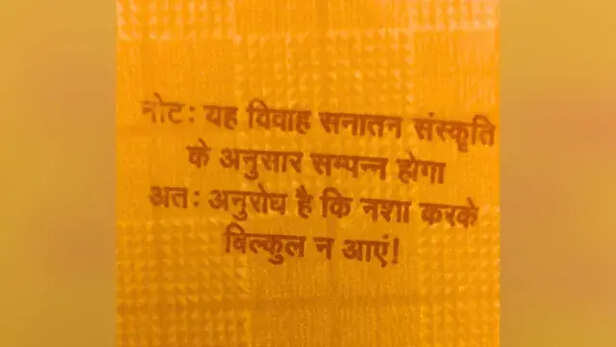 नोट: यह विवाह सनातन संस्कृति
के अनुसार सम्पन्न होगा
अत: अनुरोध है कि नशा करके
बिल्कुल न आएं!